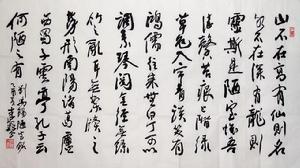 山不在高有仙則
名水不在深有龍則
靈斯是陋室惟吾
德馨苔痕上階綠
草色入簾青談笑有
鴻儒往來無白丁可以
調素琴閱金經無絲
竹之亂耳無案牘之
勞形南陽諸葛廬
西蜀子雲亭孔子云
何陋之有
劉禹錫陋室銘